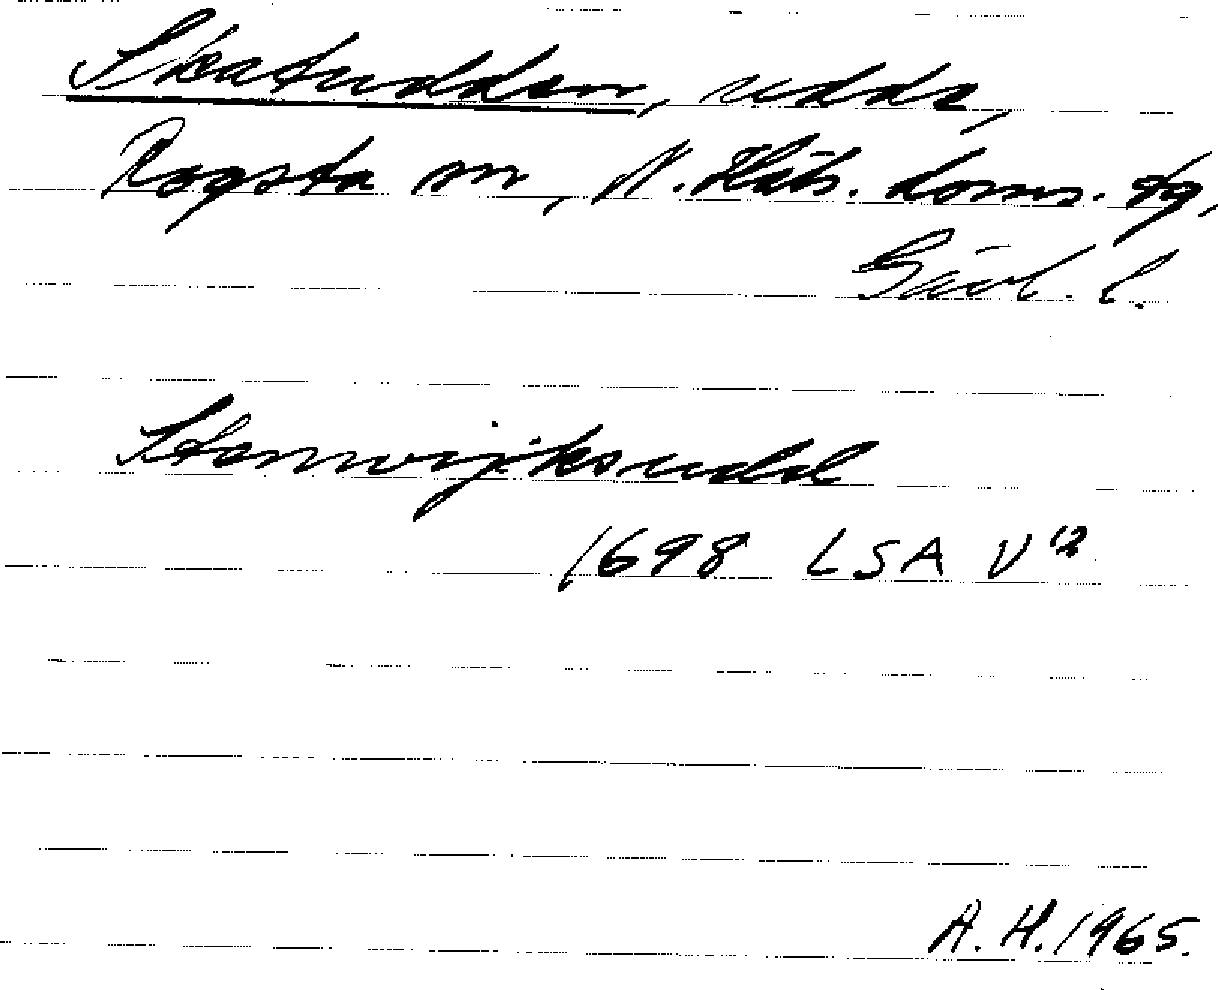 Skatudden, udde,
Rogsta sn, N. Häls. doms. tg,
Gävl. l.
Stenwijksudd
1698 LSA V 12
A. H. 1965.